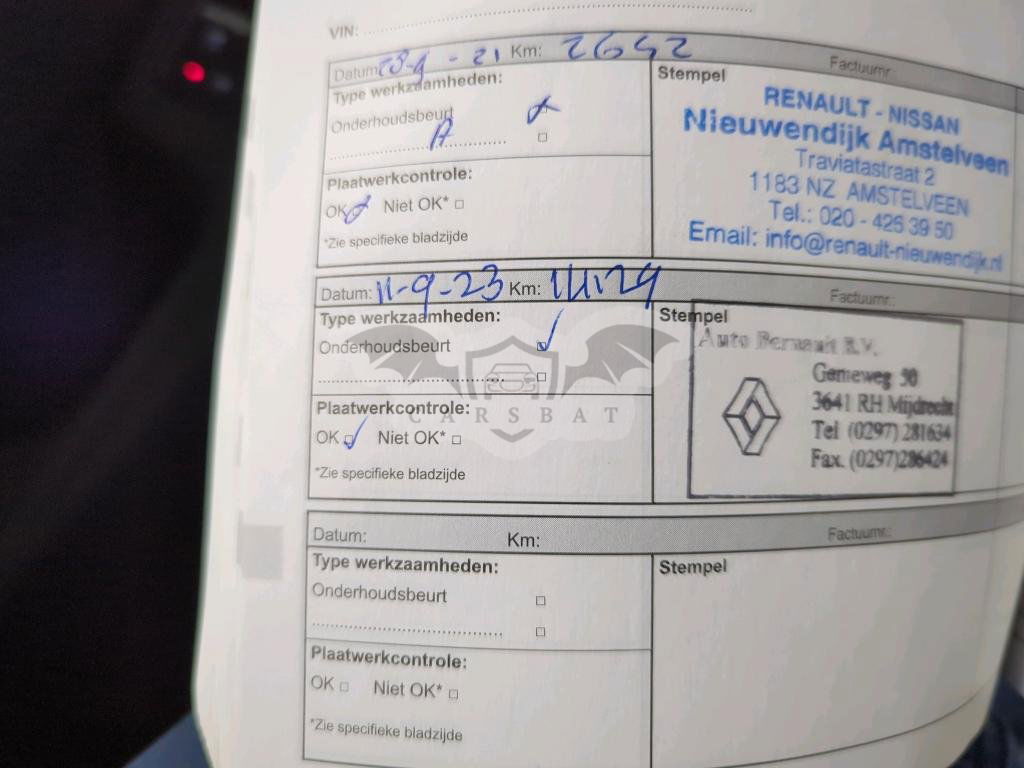 VIN:
Datum: 28-9-21 Km: 2642 Factuurnr.:
Type werkzaamheden:
Stempel
Onderhoudsbeurt
A
Plaatwerkcontrole:
OK Niet OK*
*Zie specifieke bladzijde
RENAULT - NISSAN
Nieuwendijk Amstelveen
Traviatastraat 2
1183 NZ AMSTELVEEN
Tel.: 020 - 426 39 50
Email: info@renault-nieuwendijk.nl
Datum: 11-9-23 Km: 14129 Factuurnr.:
Type werkzaamheden:
Stempel
Onderhoudsbeurt
Plaatwerkcontrole:
OK Niet OK*
*Zie specifieke bladzijde
Auto B.V.
3641 RH Mijdrecht
Tel (0297) 281634
Fax. (0297)286424
CARSBAT
Datum: Km: Factuurnr.:
Type werkzaamheden:
Stempel
Onderhoudsbeurt
Plaatwerkcontrole:
OK Niet OK*
*Zie specifieke bladzijde